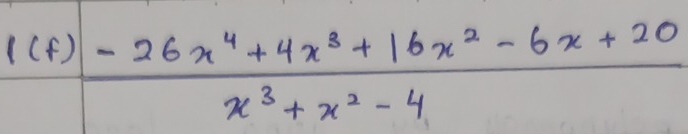 1(f) - 26x⁴ + 4x³ + 16x² - 6x + 20
x³ + x² - 4